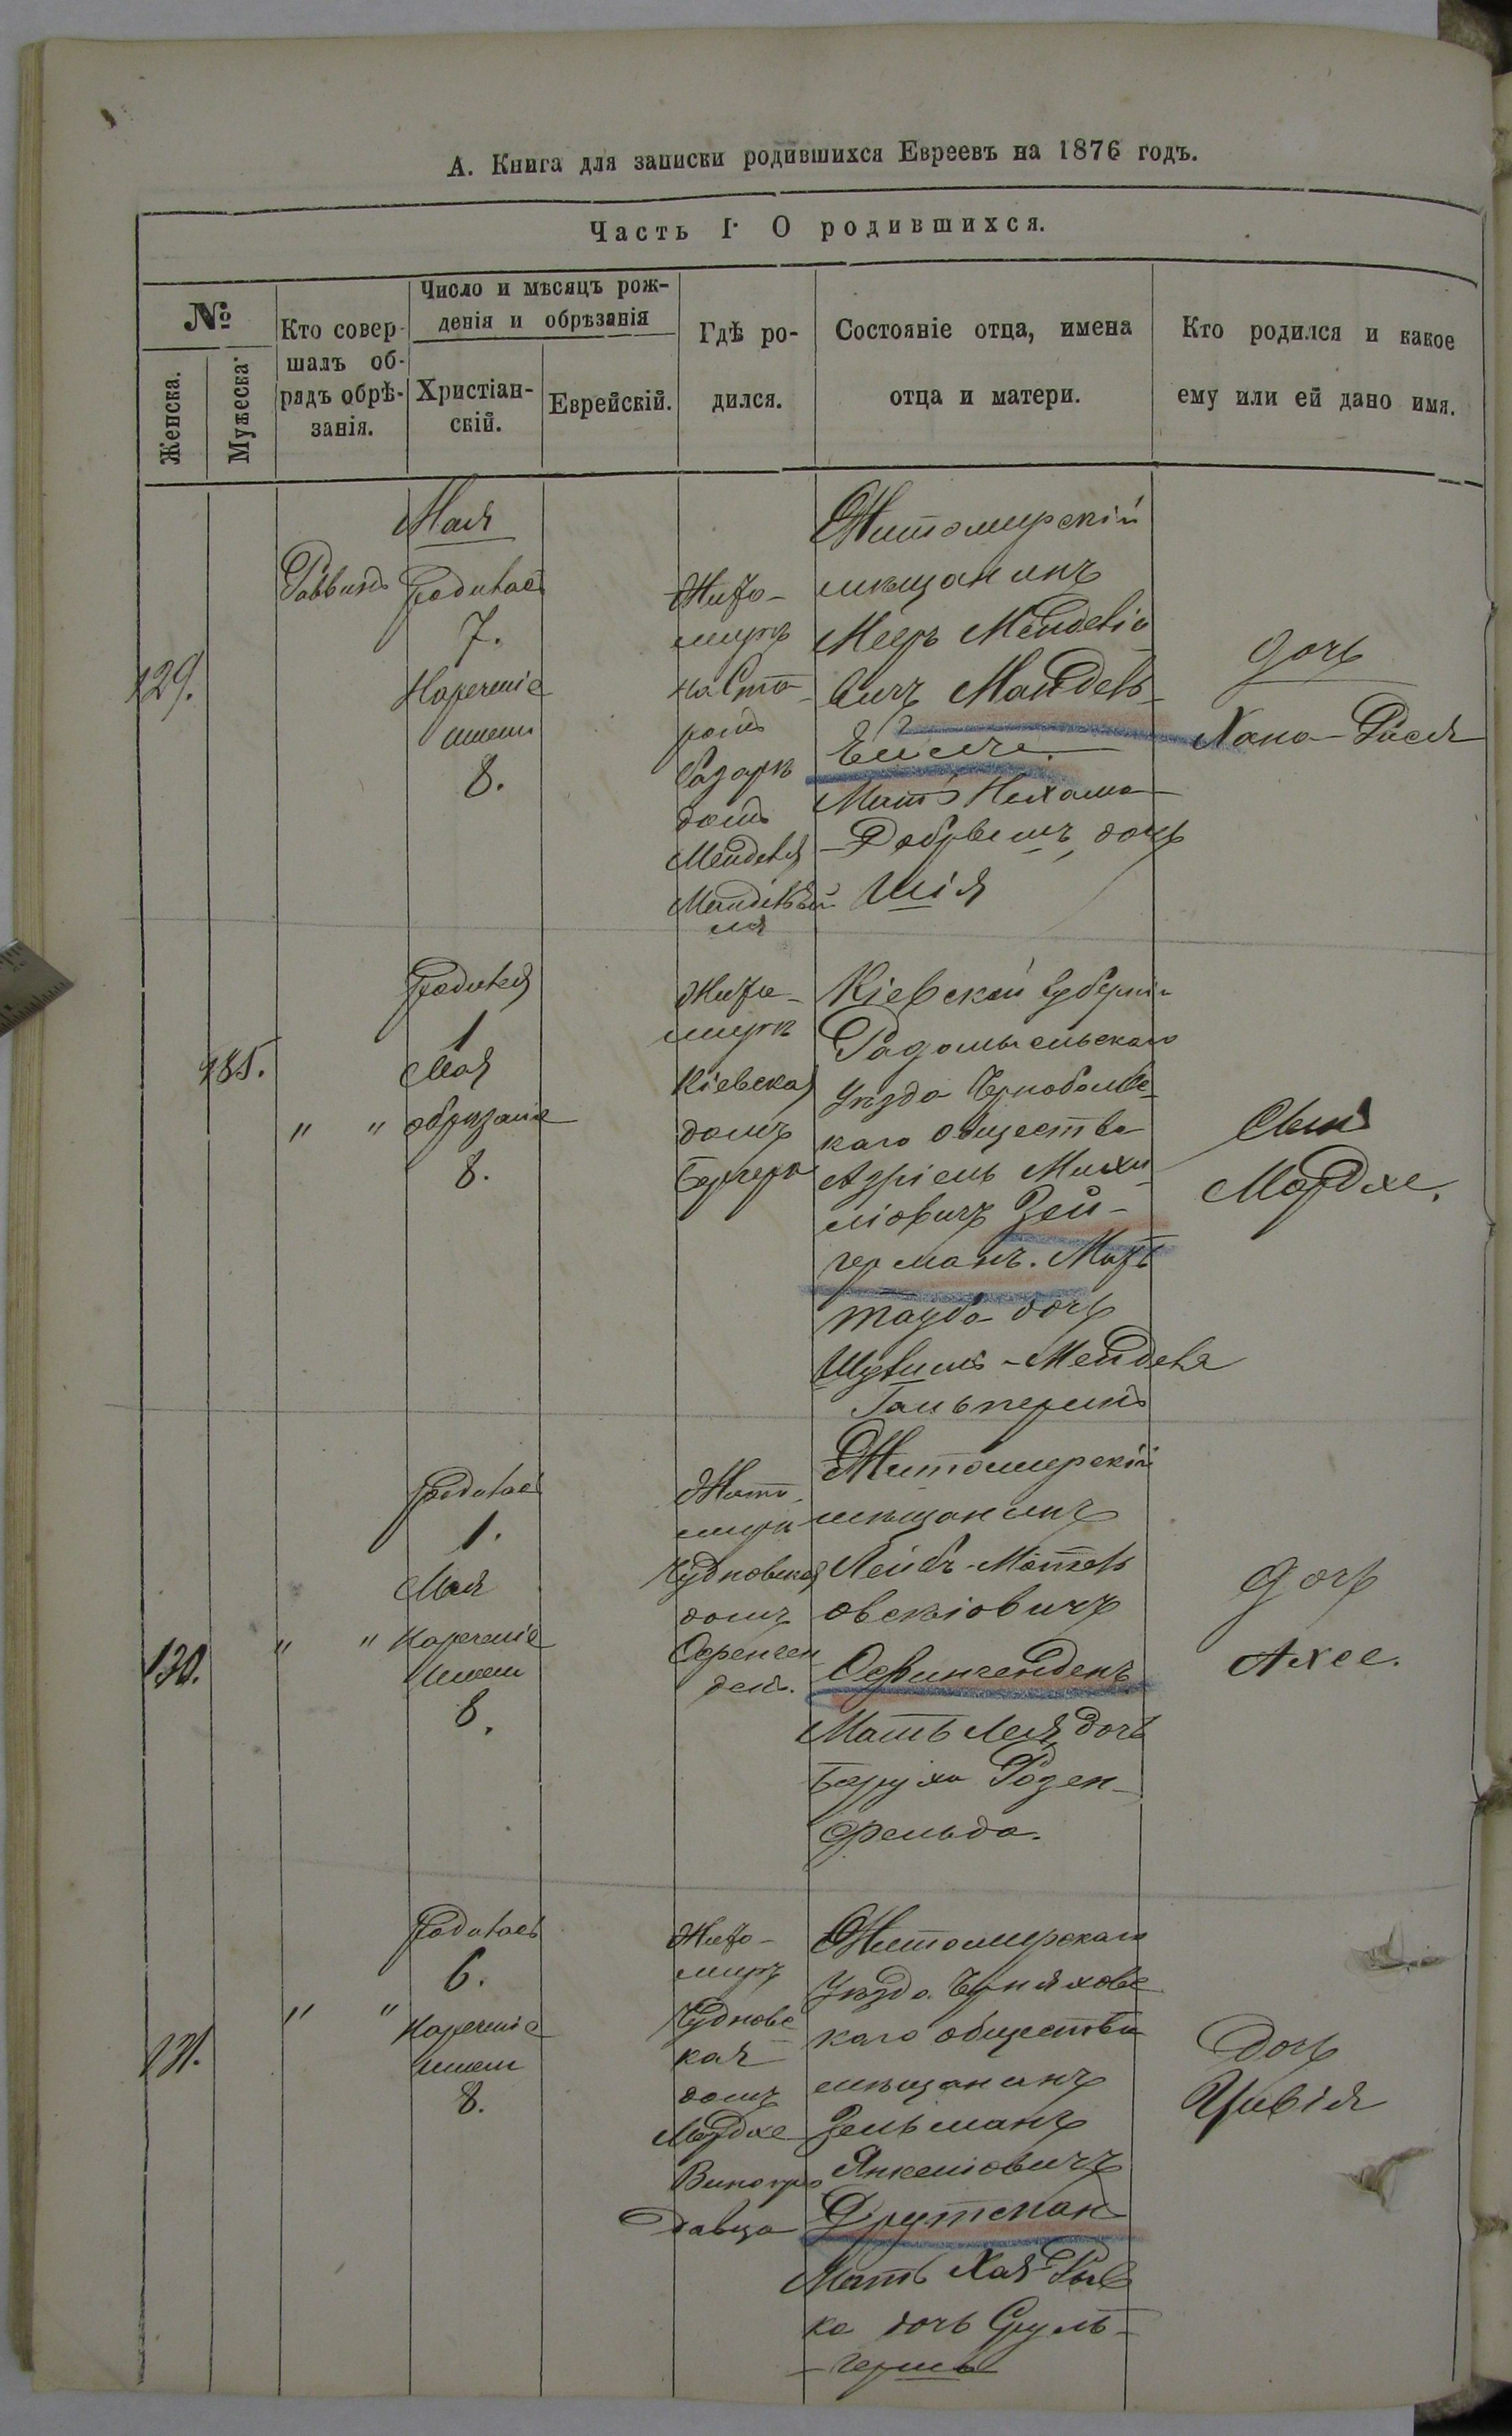 А. Книга для записки родившихся Евреевъ на 1876 годъ.
Часть I. О родившихся.
№
Женска.
Мужеска.
Кто совер-
шалъ об-
рядъ обрѣ-
занія.
Число и мѣсяцъ рож-
денія и обрѣзанія
Христіан-
скій.
Еврейскій.
Гдѣ ро-
дился.
Состояніе отца, имена
отца и матери.
Кто родился и какое
ему или ей дано имя.
129.
Раввинъ
Мая
Родилась
7.
Нареченіе
имени
8.
Жито-
миръ
на Ста-
ромъ
базарѣ
домъ
Менделя
Житомирскій
мѣщанинъ
Мееръ Менделіо
вичъ Мандель-
Мать Нехама
дочь
Шія
дочь
Хана-Рися
185.
" "
Родился
1
Мая
обрѣзаніе
8.
Жито-
миръ
Кіевская
домъ
Бергера
Кіевской губерніи
Радомысльскаго
уѣзда Чернобыльс-
каго общества
Азріель Михи
ліовичъ Зей-
германъ. Мать
Тауба дочь
Шулимъ-Менделя
Гальперина
Сынъ
Мордхе.
130.
" "
Родилась
1.
Мая
Нареченіе
имени
8.
Жито-
миръ
Чудновская
домъ
Житомирскій
мѣщанинъ
Лейбъ-Мошель
овскіовичъ
Мать Лея, дочь
Баруха Розен-
фельда.
дочь
Ахсе.
131.
" "
Родилась
6.
Нареченіе
имени
8.
Жито-
миръ
Чудновс
кая
домъ
Мордхе
Виногра
давца
Житомирскаго
уѣзда Черняховс
каго общества
мѣщанинъ
Зельманъ
Янкеліовичъ
Фрутман
Мать Хая-Рыв
ка дочь Сруль-
Герша
Дочь
Цивія